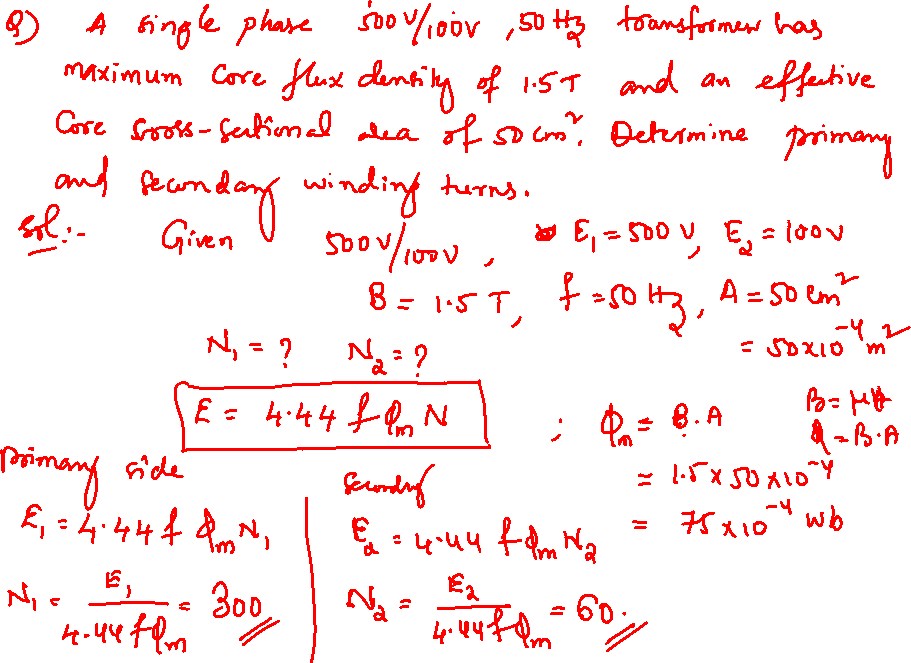 Q) A single phase 500V/100V, 50 Hz transformer has
maximum core flux density of 1.5T and an effective
core cross-sectional area of 50 cm². Determine primary
and secondary winding turns.
Sol:- Given 500V/100V, E₁ = 500 V, E₂ = 100V
B = 1.5 T, f = 50 Hz, A = 50 cm²
= 50x10⁻⁴ m²
N₁ = ? N₂ = ?
E = 4.44 f ϕₘ N ; ϕₘ = B.A
B = μH
ϕ = B.A
= 1.5 x 50 x10⁻⁴
= 75 x10⁻⁴ wb
primary side
E₁ = 4.44 f ϕₘ N₁
N₁ = E₁ / 4.44 f ϕₘ = 300
Secondary
E₂ = 4.44 f ϕₘ N₂
N₂ = E₂ / 4.44 f ϕₘ = 60.